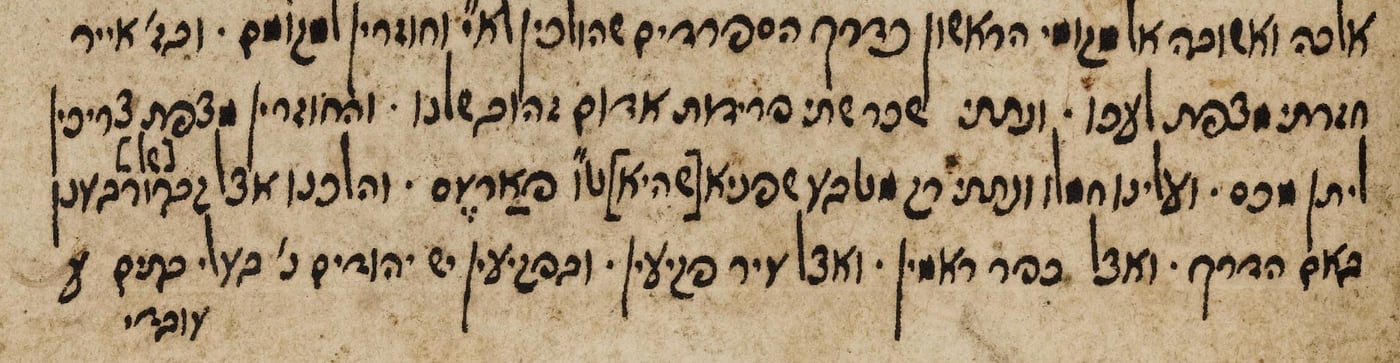 אלכה ואשובה אל מגומי הראשון כדרך הספרדים שהולכין לא״י וחוזרין למגומם · ובג׳ אייר
חזרתי מצפת לעכו · ונתתי שכר שתי פרידות אדום זהוב שלנו · והחוזרין מצפת צריכין
ליתן מכס · ועלינו חמלו ונתתי רק מטבע שפניא [שהיא] ט״ו פאראס · והלכנו אצל
באם הדרך · ואצל כפר ראמין · ואצל עיר פגיעין · ובפגיעין יש יהודים נ׳ בעלי בתים
עובדי